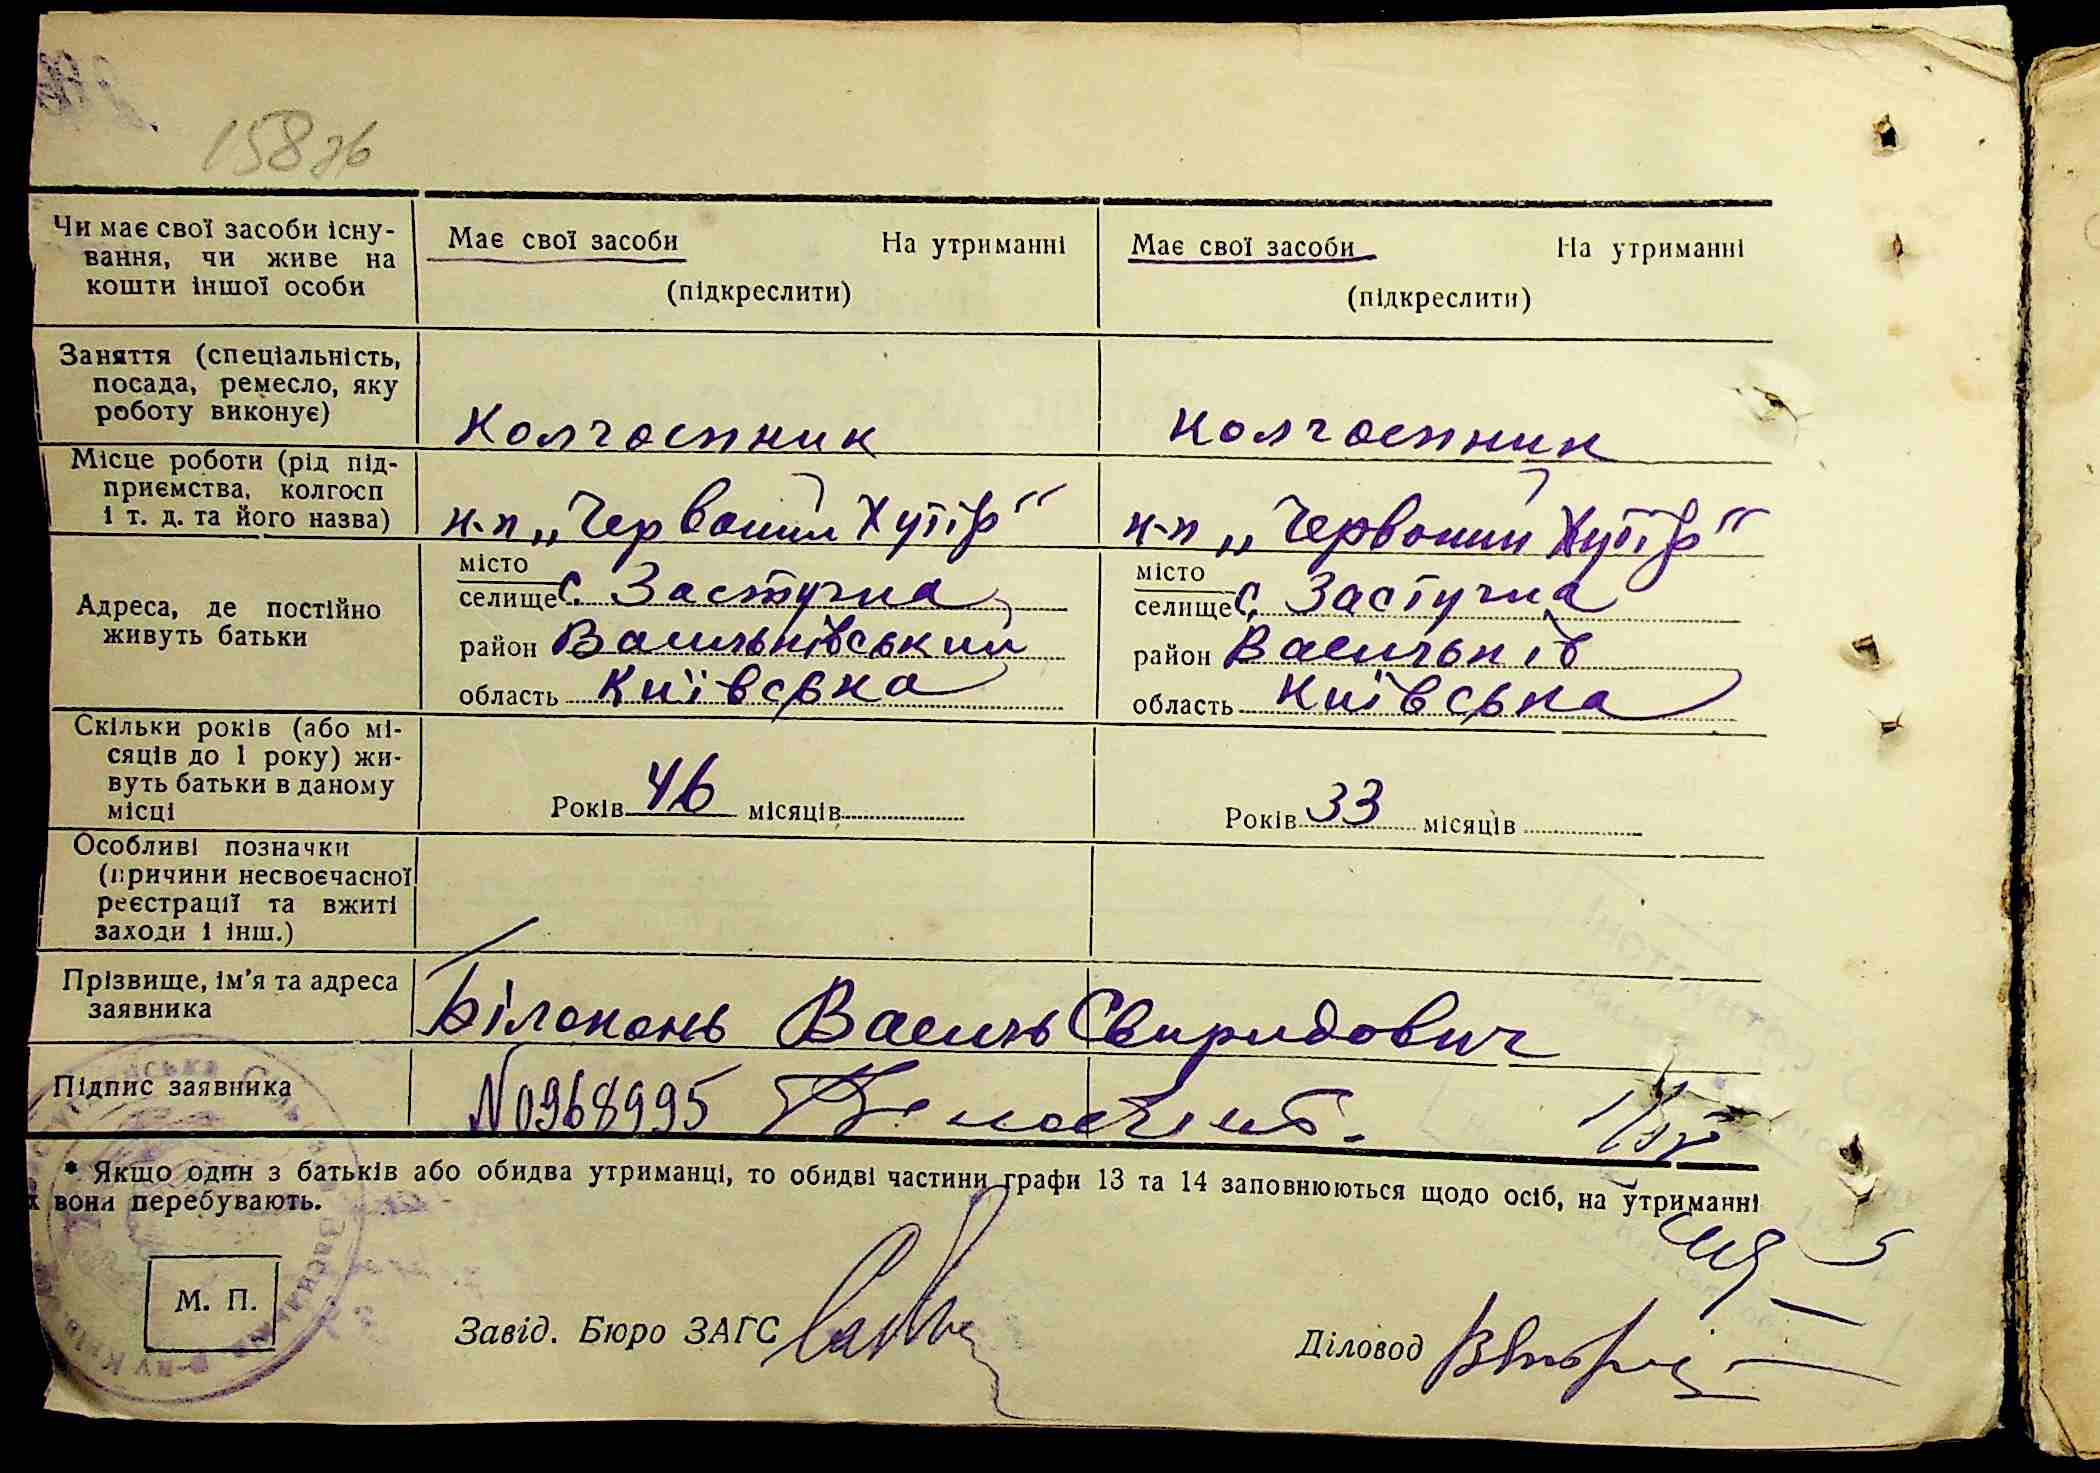 158 зв
Чи має свої засоби існу-
вання, чи живе на
кошти іншої особи
Має свої засоби На утриманні
(підкреслити)
Має свої засоби На утриманні
(підкреслити)
Заняття (спеціальність,
посада, ремесло, яку
роботу виконує)
Колгоспник
Колгоспник
Місце роботи (рід під-
приємства, колгосп
і т. д. та його назва)
к-п „Червоний Хутір"
к-п „Червоний Хутір"
Адреса, де постійно
живуть батьки
місто
селище с. Застугна
район Васильківський
область Київська
місто
селище с. Застугна
район Васильків
область Київська
Скільки років (або мі-
сяців до 1 року) жи-
вуть батьки в даному
місці
Років 46 місяців
Років 33 місяців
Особливі позначки
(причини несвоєчасної
реєстрації та вжиті
заходи і інш.)
Прізвище, ім'я та адреса
заявника
Білоконь Василь Свиридович
Підпис заявника
№0968995
* Якщо один з батьків або обидва утриманці, то обидві частини графи 13 та 14 заповнюються щодо осіб, на утриманні
х вони перебувають.
М. П.
Завід. Бюро ЗАГС
Діловод